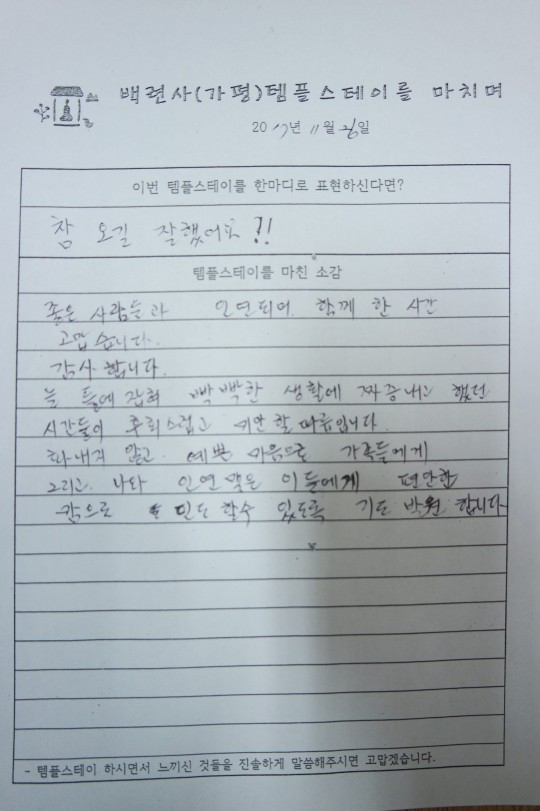 백련사(가평)템플스테이를 마치며
2017년 11월 26일
이번 템플스테이를 한마디로 표현하신다면?
참 오길 잘했어요?!
템플스테이를 마친 소감
좋은 사람들과 인연되어 함께 한 시간
고맙습니다.
감사합니다.
늘 틀에 잡혀 빡빡한 생활에 짜증내고 했던
시간들이 후회스럽고 미안할 따름입니다.
화내지 않고 예쁜 마음으로 가족들에게
그리고 나와 인연 맺은 이들에게 편안한
할수 있도록 기도 합니다
- 템플스테이 하시면서 느끼신 것들을 진솔하게 말씀해주시면 고맙겠습니다.